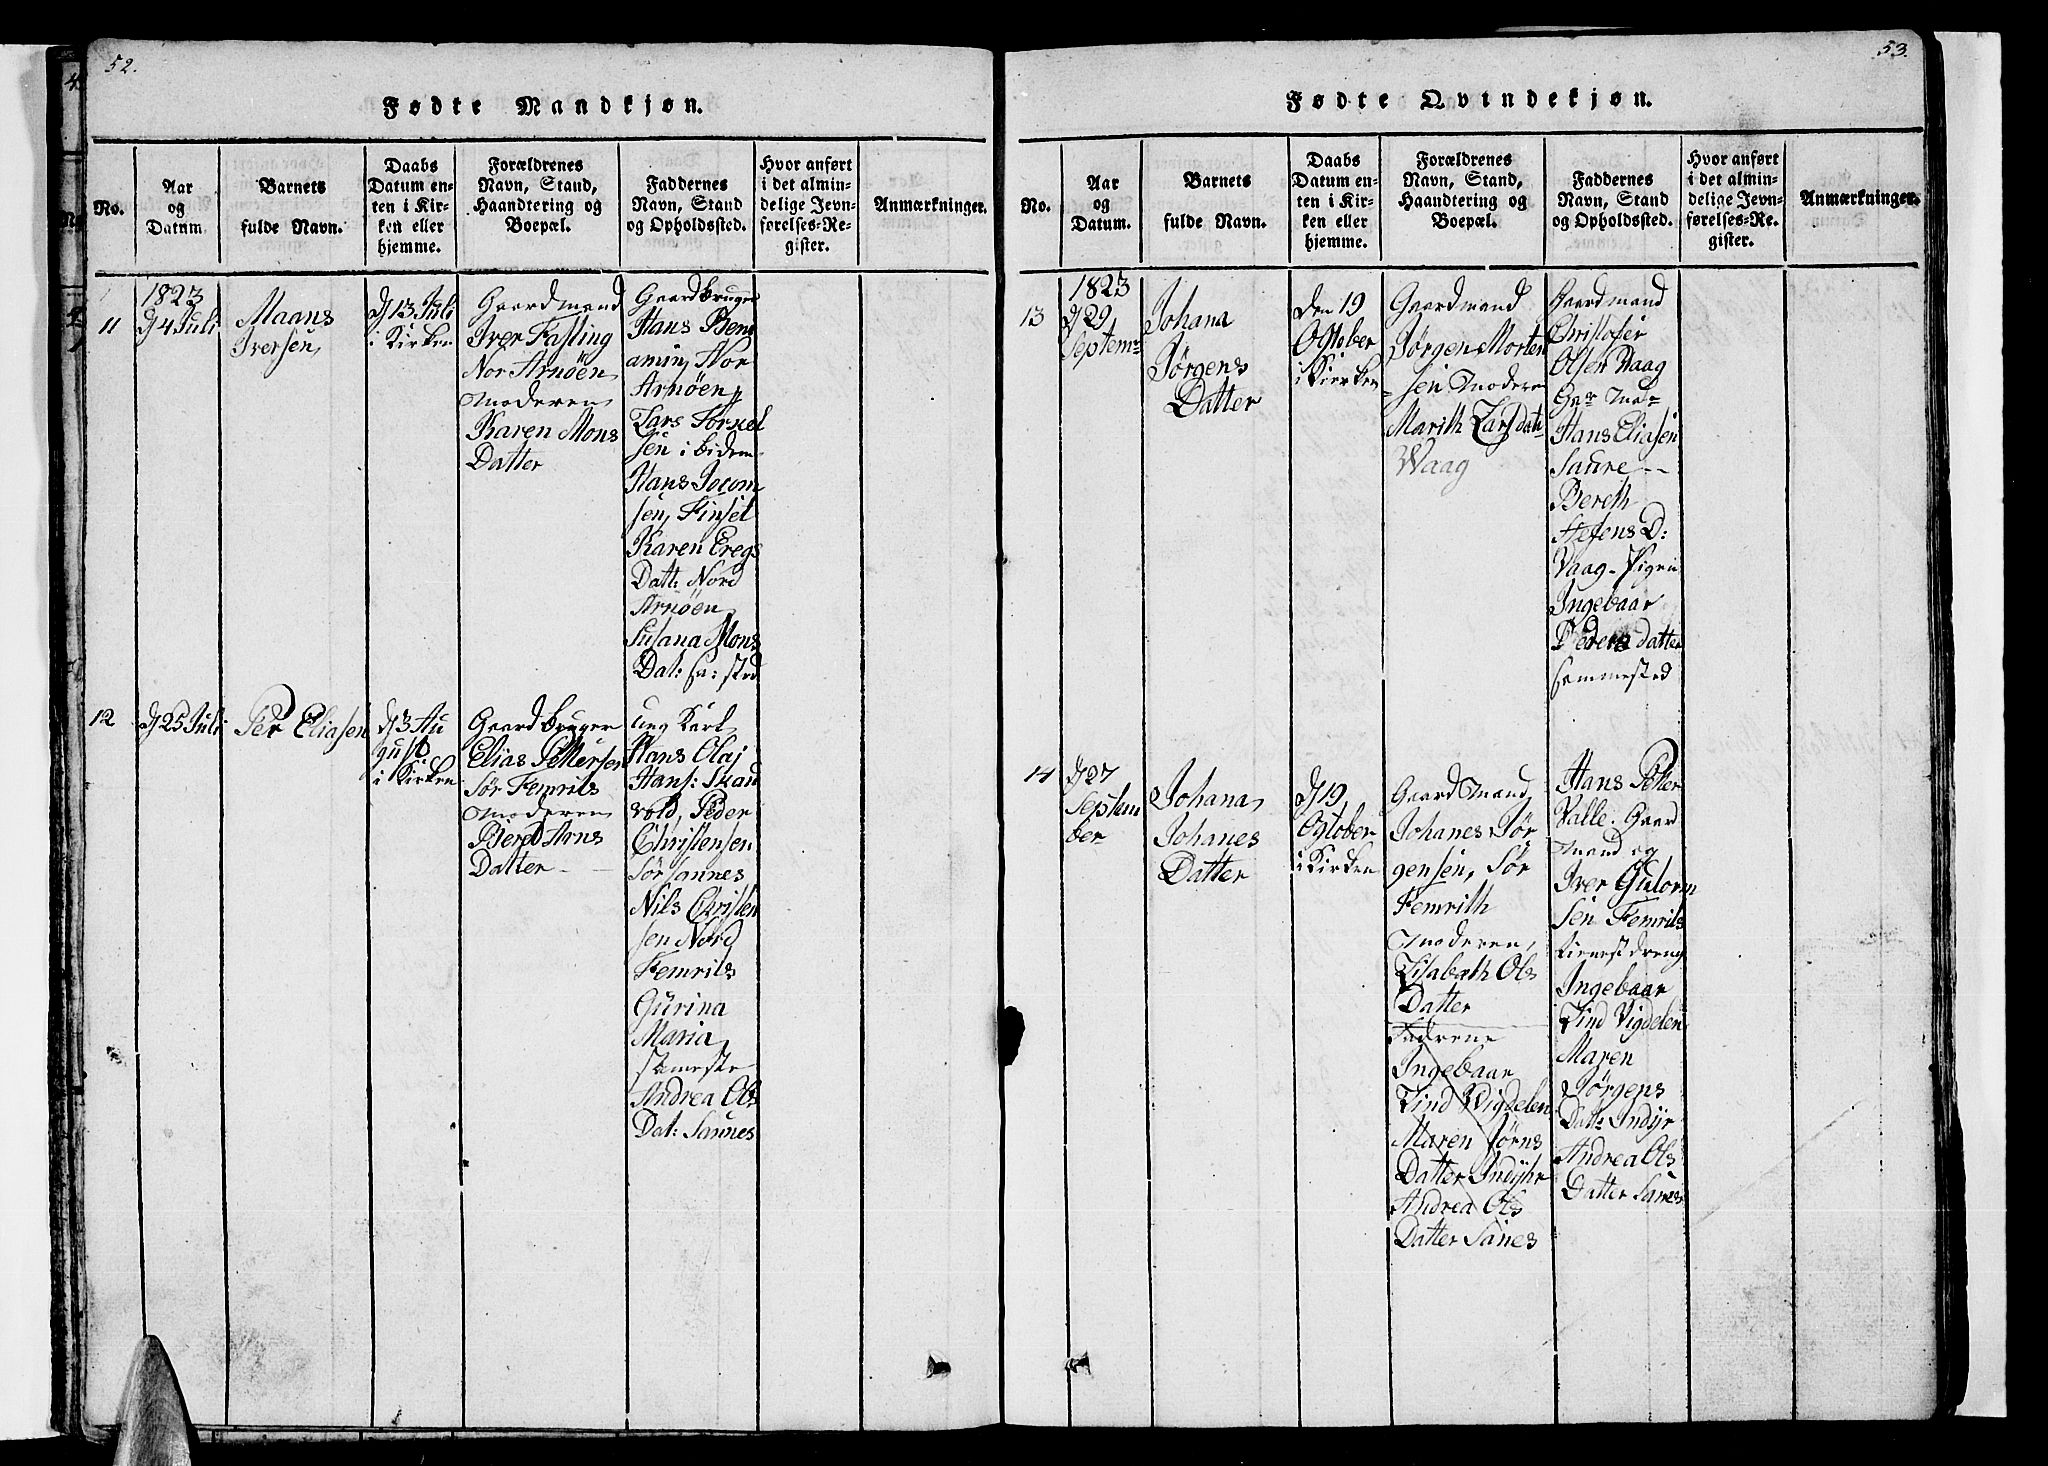 52.
Fødte Mandkjøn.
No.
Aar
og
Datum
Barnets
fulde Navn.
Daabs
Datum en-
ten i Kir-
ken eller
hjemme.
Forældrenes
Navn, Stand,
Haandtering og
Boepæl.
Faddernes
Navn, Stand
og Opholdssted.
Hvor anført
i det almin-
delige Jevn-
førelses-Re-
gister.
Anmærkninger.
11
1823
d 4 Juli
Maans
Iversen
d 13 Juli
i Kirken
Gaardmand
Iver Fasting
Nor Arnöen
Moderen
Karen Mons
Datter
Gaardbruger
Hans Benj
amin, Nor
Arnöen,
Lars Tørnel
sen ibidem
Hans Jocom
sen, Finset
Karen Eregs
Datt: Nord
Arnöen
Susana Mons
Dat: sa: sted
12
d 25 Juli
Per Eliasen
d 3 Au
gust
i Kirken
Gaardbruger
Elias Pettersen
Sör Femris
Moderen
Beret Arns
Datter
ung Karl
Hans Olaj
Hans: Skau
vold, Peder
Christensen
Sörsannes
Nils Christen
sen Nord
Femris
Gurina
Maria
sameste
Andrea Ols
Dat: Sannes
53.
Fødte Qvindekjøn.
No.
Aar
og
Datum.
Barnets
fulde Navn.
Daabs
Datum en-
ten i Kir-
ken eller
hjemme.
Forældrenes
Navn, Stand,
Haandtering og
Boepæl.
Faddernes
Navn, Stand
og Opholdssted.
Hvor anført
i det almin-
delige Jevn-
førelses-Re-
gister.
Anmærkninger.
13
1823
d 29
Septem:
Johana
Jörgens
Datter
Den 19
October
i Kierken
Gaardmand
Jörgen Morten
sen Moderen
Marith Larsdat
Waag
Gaardmand
Christofer
Olsen Vaag
Gar Ma
Hans Eliasen
Saure
Bereth
Stefens D:
Vaag. Pigen
Ingebaar
Peders datter
sammested
14
d 27
Septem
ber
Johana
Johanes
Datter
d 19
October
i Kirken
Gaardmand
Johanes Jör
gensen, Sör
Femrith
Moderen,
Elsabath Ols
Datter
Fadrene
Ingebaar
Find Wigdelen
Maren Jörns
Datter Indyhr
Andrea Ols
Datter Sanes
Hans Peter
Valle. Gaard
mand og
Iver Gutorm
sen Femris
tienest dreng
Ingebaar
Find Vigdelen
Maren
Jörgens
Dat: Indyr
Andrea Ols
Datter Sanes